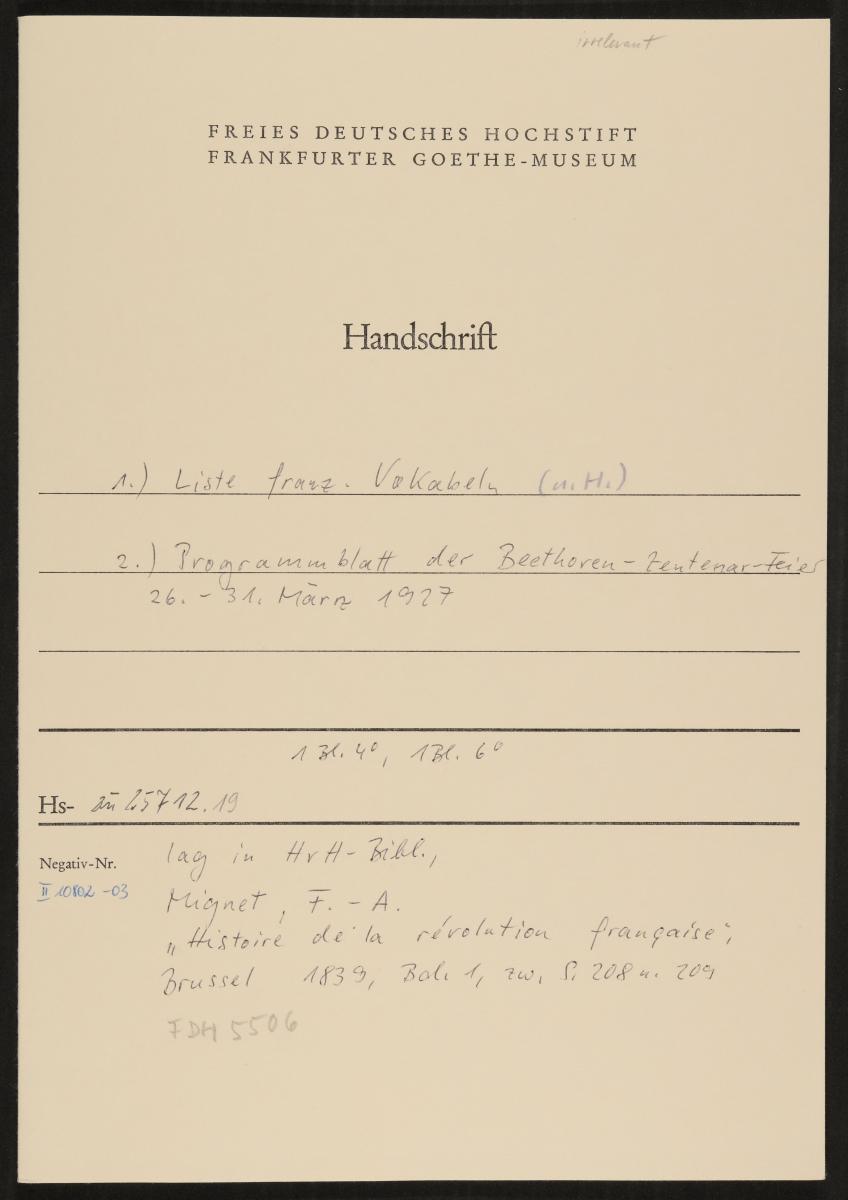 irrelevant
FREIES DEUTSCHES HOCHSTIFT
FRANKFURTER GOETHE-MUSEUM
Handschrift
1.) Liste franz. Vokabeln (u.H.)
2.) Programmblatt der Beethoven-Zentenar-Feier
26. - 31. März 1927
1 Bl. 4°, 1 Bl. 6°
Hs- zu 25712.19
Negativ-Nr.
II 10802 -03
lag in HvH-Bibl.,
Mignet, F. - A.
„Histoire de la révolution française",
Brussel 1839, Bd. 1, zw. S. 208 u. 209
FDH 5506